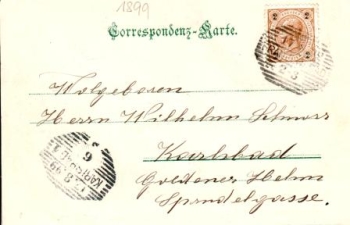 1899
Correspondenz-Karte.
2 2
Wolgeboren
Herrn Wilhelm Schnurr
Karlsbad
Goldener Helm
Sprudelgasse.